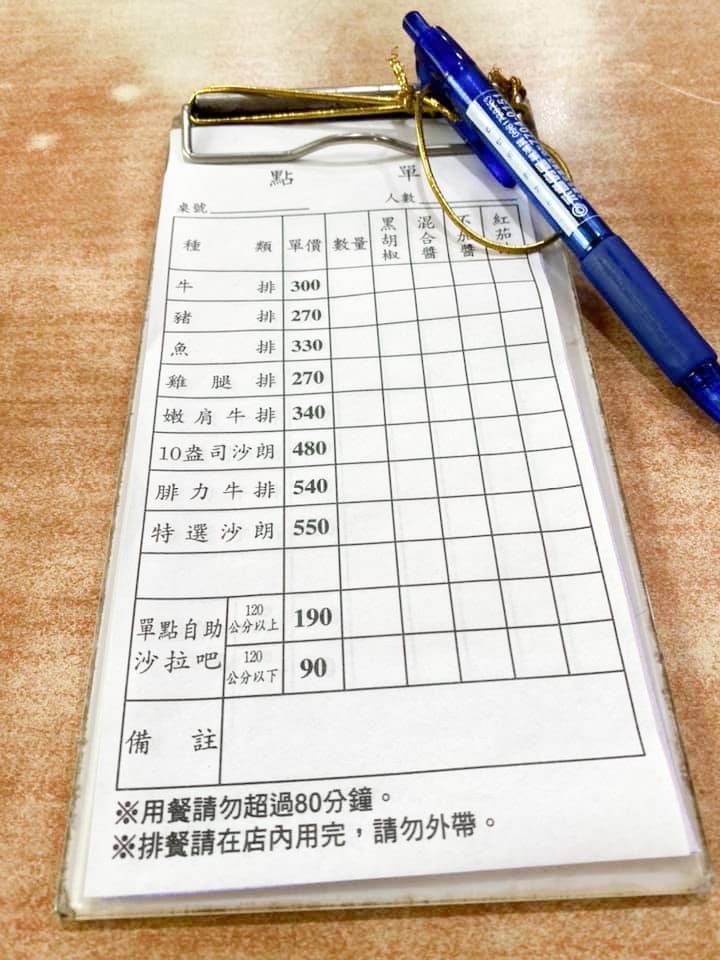 點 單
桌號 人數
種 類 單價 數量 黑胡椒 混合醬 不加醬 紅茄
牛 排 300
豬 排 270
魚 排 330
雞 腿 排 270
嫩肩牛排 340
10盎司沙朗 480
腓力牛排 540
特選沙朗 550
單點自助沙拉吧 120公分以上 190
120公分以下 90
備 註
※用餐請勿超過80分鐘。
※排餐請在店內用完,請勿外帶。